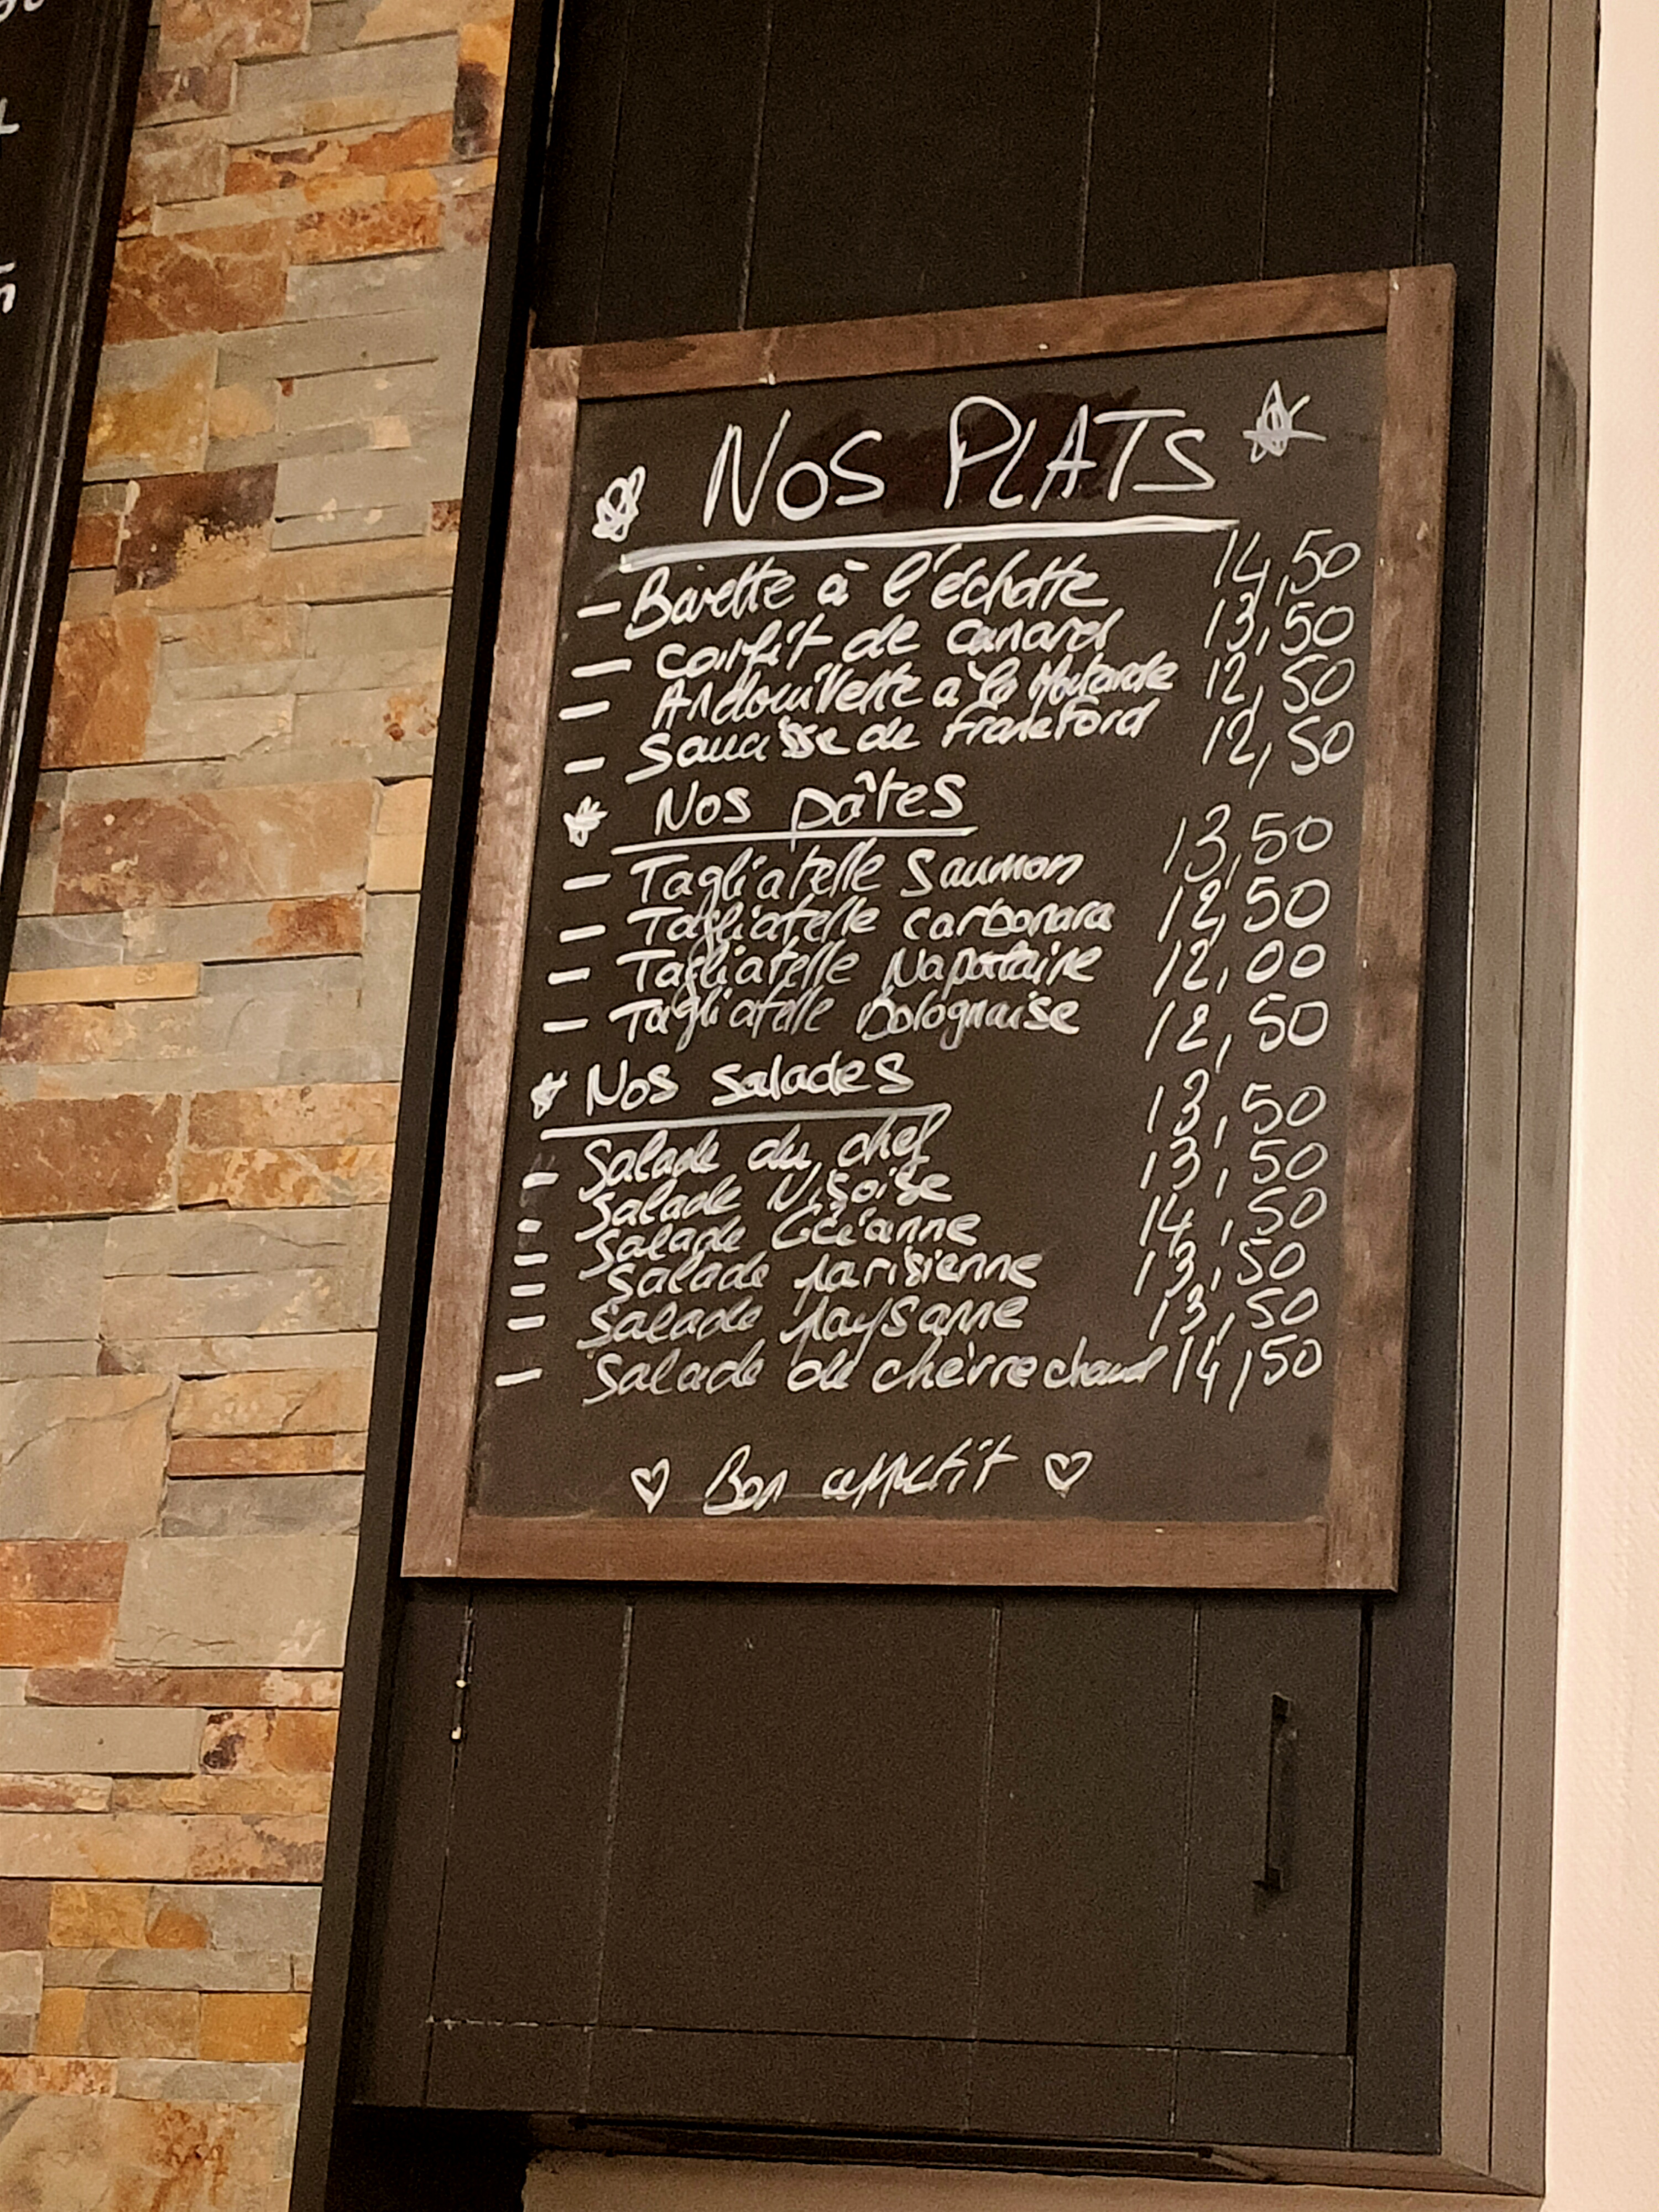 Nos PLATs
- Bavette à l'échotte 14,50
- confit de canard 13,50
- Andouillette à la Moutarde 12,50
- Saucisse de Frankford 12,50
Nos pâtes
- Tagliatelle Saumon 13,50
- Tagliatelle carbonara 12,50
- Tagliatelle Napolaine 12,00
- Tagliatelle Bolognaise 12,50
Nos salades
- Salade du chef 13,50
- Salade Niçoise 13,50
- Salade Océanne 14,50
- Salade parisienne 13,50
- Salade paysanne 13,50
- Salade de chèvre chaud 14,50
Bon appétit